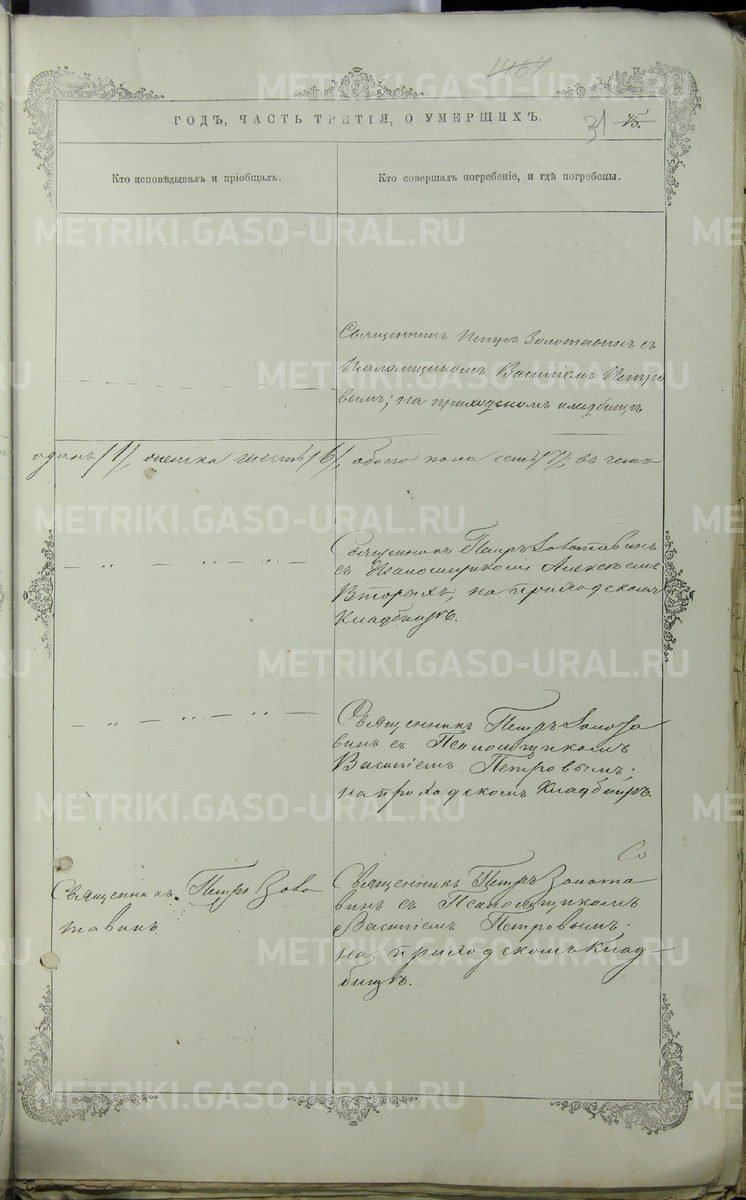 1164
ГОДЪ, ЧАСТЬ ТРЕТІЯ, О УМЕРШИХЪ.
31 45.
Кто исповѣдывалъ и пріобщалъ.
Кто совершалъ погребеніе, и гдѣ погребены.
Священникъ Петръ Золотавинъ съ
Псаломщикомъ Василіемъ Петро
вымъ; на приходскомъ кладбищѣ
одинъ /1/, женска шесть /6/, обоего пола семь /7/; въ чемъ
Священникъ Петръ Золотавинъ
съ Псаломщикомъ Алексѣемъ
Вторыхъ; на приходскомъ
Кладбищѣ.
Священникъ Петръ Золота
винъ съ Псаломщикомъ
Василіемъ Петровымъ;
на приходскомъ Кладбищѣ.
Священникъ Петръ Золо
тавинъ
Священникъ Петръ Золота
винъ съ Псаломщикомъ
Василіемъ Петровымъ.
на приходскомъ Клад-
бищѣ.
METRIKI.GASO-URAL.RU